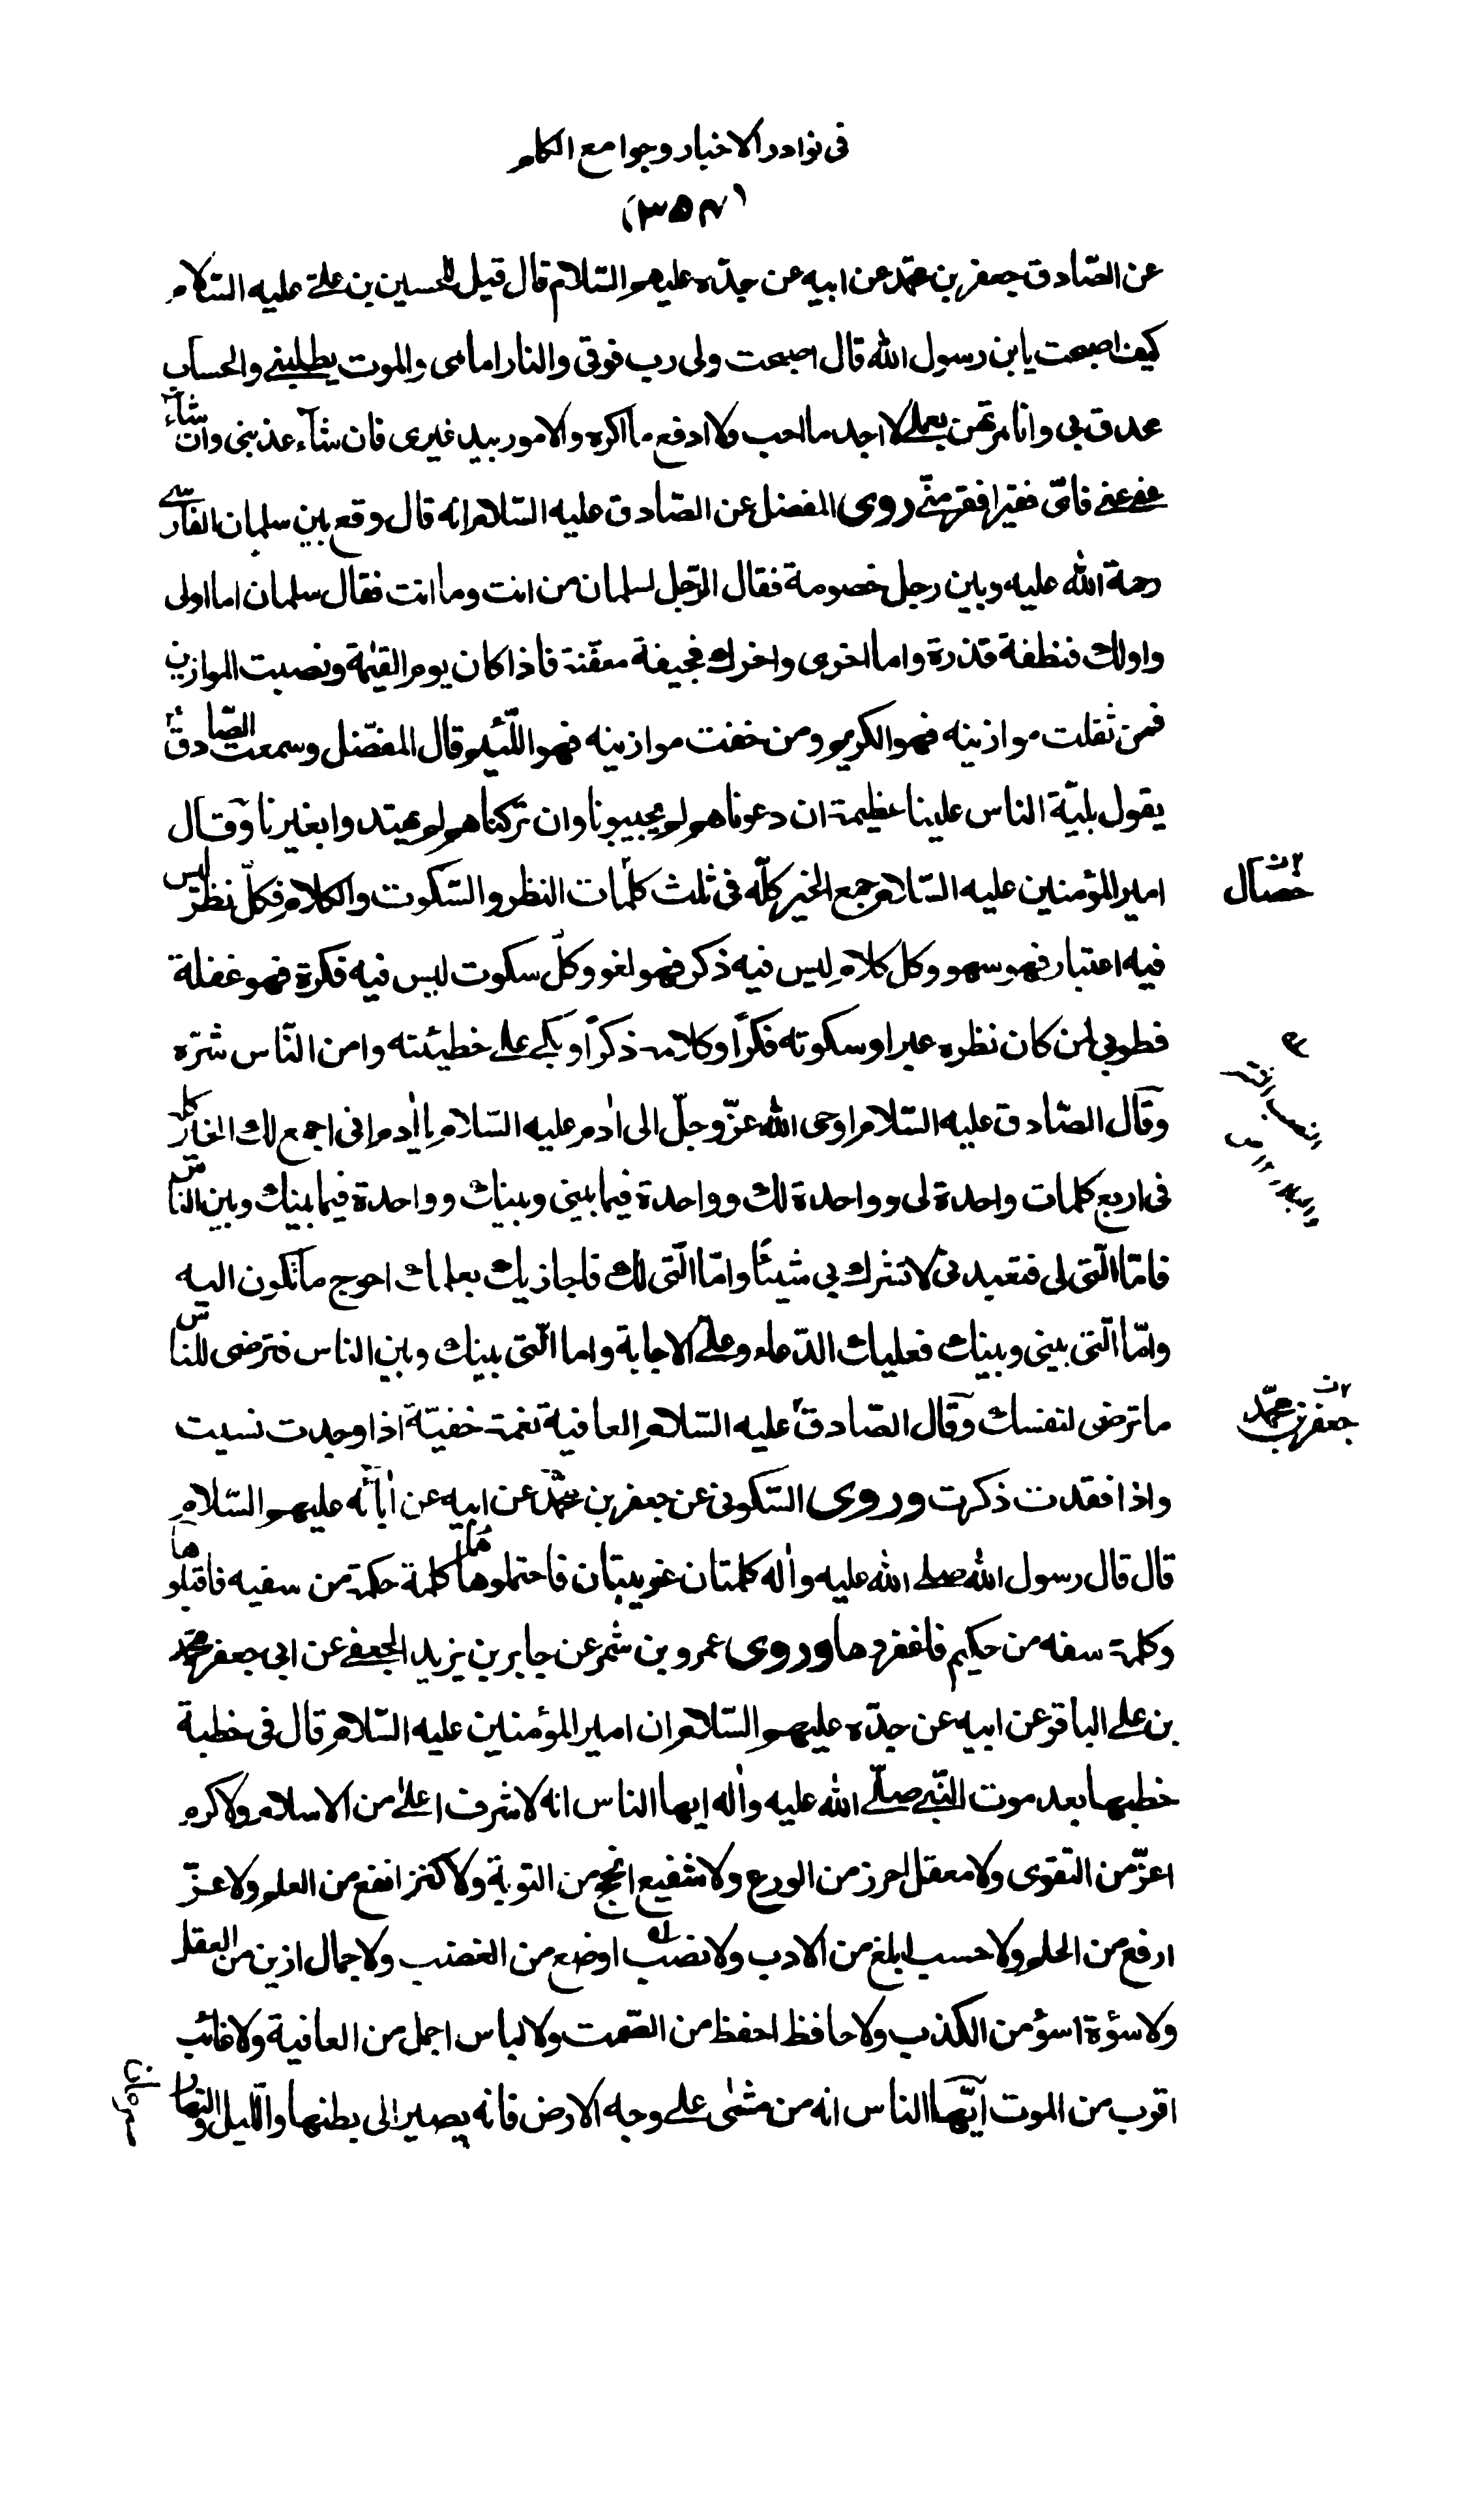 فى نوادر الاخبار وجوامع الكلم
(٣٥٧)
عن الصّادق جعفر بن محمّد عن ابيه عن جدّه عليهم السّلام قال قيل للحسين بن علىّ عليه السّلام
كيف اصبحت يابن رسول الله قال اصبحت ولى رب فوقى والنار امامى والموت يطلبنى والحساب
محدق بى وانا مرتهن بعملى لا اجد ما احب ولا ادفع ما اكره والامور بيد غيرى فان شآء عذبنى وان شآء
عفى عنى فاىّ فقير افقر منّى روى المفضل عن الصّادق عليه السّلام انه قال وقع بين سلمان الفارسى
رحمة الله عليه وبين رجل خصومة فقال الرّجل لسلمان من انت وما انت فقال سلمان اما اولى
واولك فنطفة قذرة واما اخرى واخرك فجيفة معفنة فاذا كان يوم القيٰمة ونصبت الموازين
فمن ثقلت موازينه فهو الكريم ومن خفت موازينه فهو اللّئيم وقال المفضّل وسمعت الصّادقؑ
يقول بليّة الناس علينا عظيمة ان دعوناهم لم يجيبونا وان تركناهم لم يهتدوا بغيرنا وقال
امير المؤمنين عليه السّلام جمع الخير كلّه فى ثلث كلمات النظر والسّكوت والكلام فكلّ نظر ليس
خصال
فيه اعتبار فهو سهو وكل كلام ليس فيه ذكر فهو لغو وكلّ سكوت ليس فيه فكرة فهو غفلة
فطوبى لمن كان نظره عبرا وسكوته فكرًا وكلامه ذكرًا وبكى على خطيئته وامن النّاس شرّه
وقال الصّادق عليه السّلام اوحى الله عزّ وجلّ الى اٰدم عليه السّلام يا اٰدم انى اجمع لك الخير كله
فى اربع كلمات واحدة لى وواحدة لك وواحدة فيما بينى وبينك وواحدة فيما بينك وبين النّاس
فامّا الّتى لى فتعبدنى لا تشرك بى شيئًا وامّا الّتى لك فاجازيك بعملك احوج ما تكون اليه
وامّا الّتى بينى وبينك فعليك الدّعاء وعلىّ الاجابة واما الّتى بينك وبين الناس فترضى للنّاس
ما ترضى لنفسك وقال الصّادقؑ عليه السّلام العافية نعمة خفيّة اذا وجدت نسيت
جعفر بن محمّد
واذا فقدت ذكرت وروى السّكونى عن جعفر بن محمّد عن ابيه عن اٰبآئه عليهم السّلام
قال قال رسول الله صلى الله عليه واٰله كلمتان غريبتان فاحتملوهما كلمة حكمة من سفيه فاقبلوها
وكلمة سفه من حكيم فاغفروها وروى عمرو بن شمر عن جابر بن يزيد الجعفى عن ابى جعفر محمّد
بن على الباقر عن ابيه عن جدّه عليهم السّلام ان امير المؤمنين عليه السّلام قال فى خطبة
خطبها بعد موت النّبى صلّى الله عليه واٰله ايها الناس انه لا شرف اعلىٰ من الاسلام ولا كرم
اعزّ من التقوى ولا معقل احرز من الورع ولا شفيع انجح من التوبة ولا كنز انفع من العلم ولا عزّ
ارفع من الحلم ولا حسب ابلغ من الادب ولا نصب اوضع من الغضب ولا جمال ازين من العقل
ولا سؤة اسؤ من الكذب ولا حافظ احفظ من الصّمت ولا لباس اجمل من العافية ولا غائب
اقرب من الموت ايّها الناس انه من مشى على وجه الارض فانه يصير الى بطنها والّليل والنهار